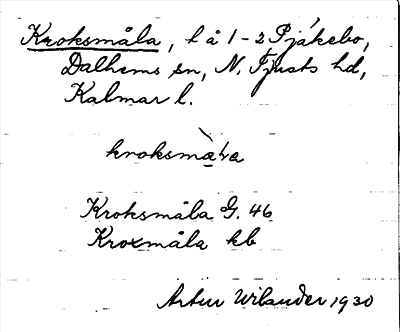 Kroksmåla, l å 1-2 Pjäkebo,
Dalhems sn, N. Tjusts hd,
Kalmar l.
Kroksmåla G. 46
Kroxmåla kb
Artur Wilander 1930